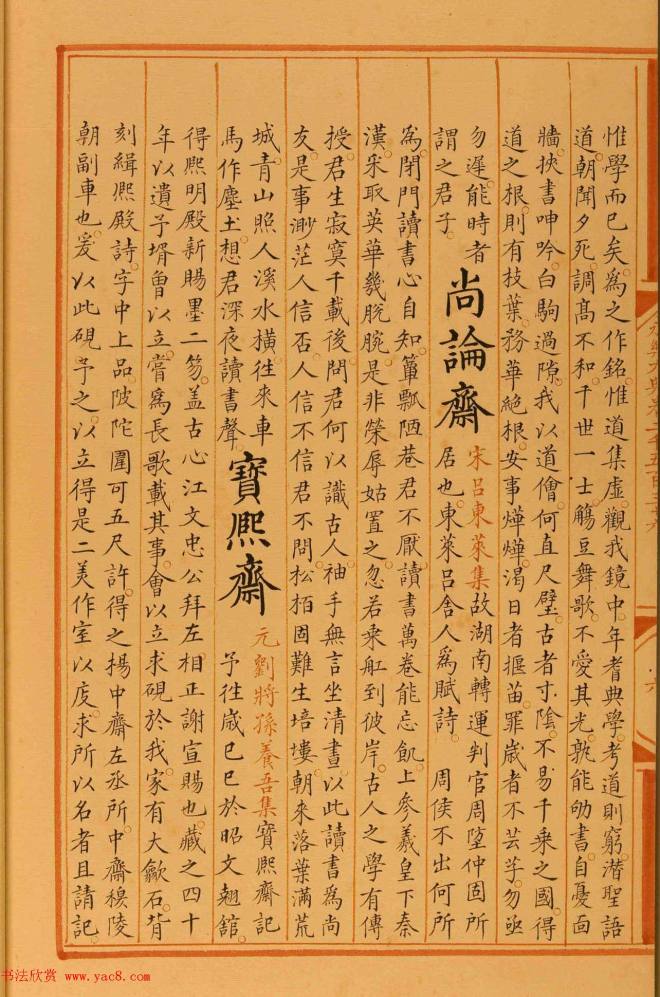 永樂大典卷二千五百三十六
六
惟學而已矣為之作銘惟道集虛觀我鏡中年耆典學考道則窮潛聖語
道朝聞夕死調髙不和千世一士觴豆舞歌不愛其光孰能劬書自憂面
牆挾書呻吟白駒過隙我以道儈何直尺璧古者寸陰不易千乘之國得
道之根則有枝葉務華絕根安事燁燁渴日者揠苗罪歲者不芸芓勿亟
勿遲能時者
謂之君子
尚論齋
宋呂東萊集故湖南轉運判官周堕仲固所
居也東萊呂舍人為賦詩 周侯不出何所
為閉門讀書心自知簞瓢陋巷君不厭讀書萬卷能忘飢上參羲皇下秦
漢采取英華幾脫腕是非榮辱姑置之忽若乘舡到彼岸古人之學有傳
授君生寂寞千載後問君何以識古人袖手無言坐清晝以此讀書為尚
友是事渺茫人信否人信不信君不問松栢固難生培塿朝來落葉滿荒
城青山照人溪水橫往來車
馬作塵土想君深夜讀書聲
寶熙齋
元劉將孫養吾集寶熙齋記
予往歲巳巳於昭文翹舘
得熙明殿新賜墨二笏盖古心江文忠公拜左相正謝宣賜也藏之四十
年以遺予壻曾以立嘗寫長歌載其事會以立求硯於我家有大歙石背
刻緝熙殿詩字中上品陂陀圍可五尺許得之揚中齋左丞所中齋穆陵
朝副車也爰以此硯予之以立得是二美作室以庋求所以名者且請記
书法欣赏 www.yac8.com